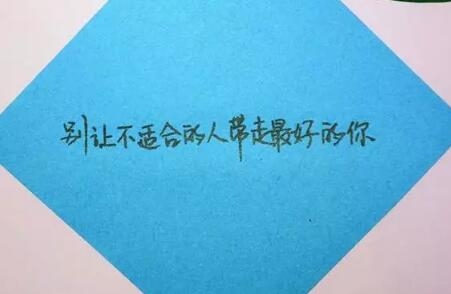 别让不适合的人带走最好的你